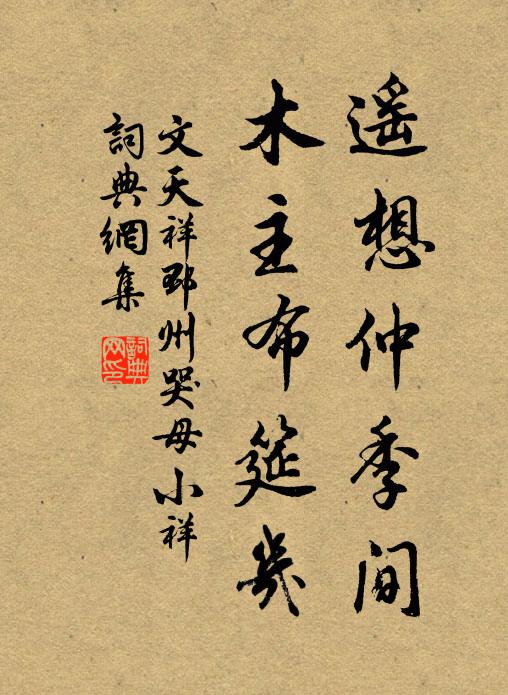 遥想仲季间
木主布筵几
文天祥邳州哭母小祥
詞典網集
詞典
网印